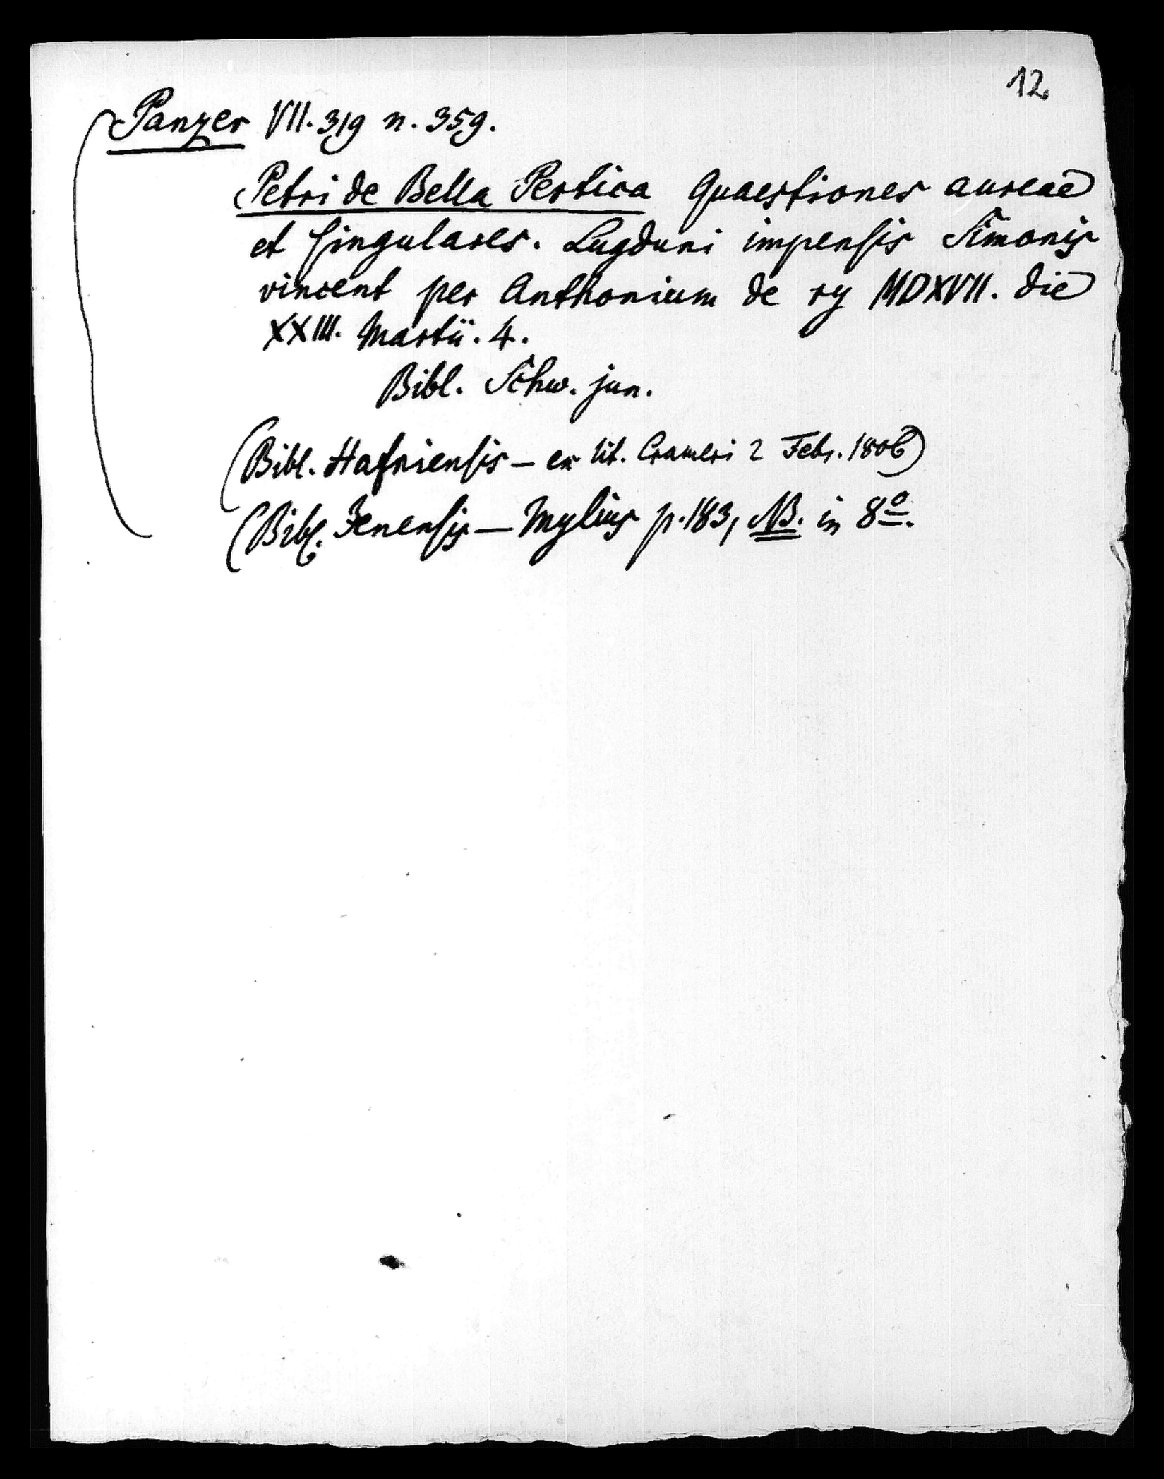 12.
Panzer VII. 319 n. 359.
Petri de Bella Pertica Quaestiones aureae
et singulares. Lugduni impensis Simonis
vincent per Anthonium de ry MDXVII. die
XXIII. Martii. 4.
Bibl. Schw. jun.
(Bibl. Hafniensis – ex lit. Crameri 2 Febr. 1806)
(Bibl. Jenensis – Mylius p. 183, NB. in 8º.